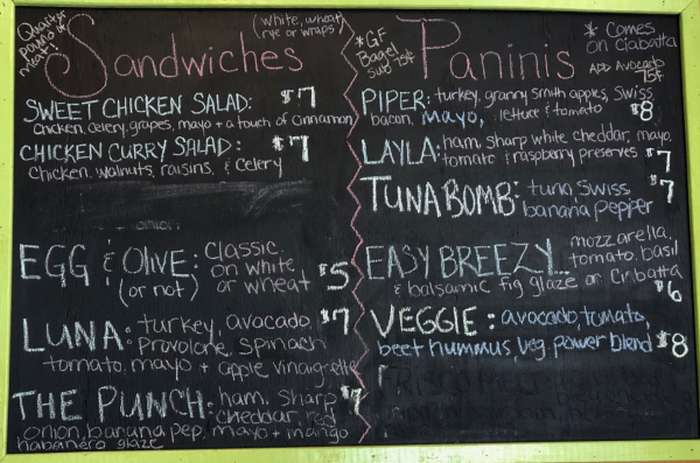 Quarter
pound of
meat!
Sandwiches
(white, wheat,
rye or wraps)
SWEET CHICKEN SALAD: $7
chicken, celery, grapes, mayo + a touch of cinnamon
CHICKEN CURRY SALAD: $7
chicken, walnuts, raisins, & celery
onion
EGG & OLIVE: classic
(or not) on white
or wheat $5
LUNA: turkey, avocado, $7
provolone, spinach
tomato, mayo + apple vinaigrette
THE PUNCH: ham, sharp $7
cheddar, red
onion, banana pep, mayo + mango
habanero glaze
*GF
Bagel
sub 75¢
Paninis
* Comes
on ciabatta
ADD Avocado
75¢
PIPER: turkey, granny smith apples, swiss
bacon, mayo, lettuce & tomato $8
LAYLA: ham, sharp white cheddar, mayo,
tomato & raspberry preserves $7
TUNA BOMB: tuna, swiss $7
banana pepper
EASY BREEZY... mozzarella,
tomato, basil
& balsamic fig glaze on Ciabatta
$6
VEGGIE: avocado, tomato,
beet hummus, veg. power blend $8